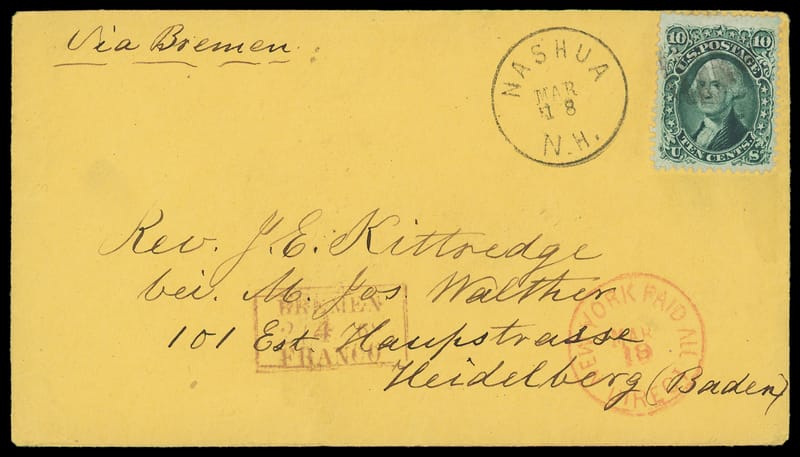 Via Bremen
NASHUA
MAR
18
N.H.
10 10
U.S. POSTAGE
TEN CENTS.
U S
Rev. J. E. Kittredge
bei. M. Jos Walther
101 Est Haupstrasse
Heidelberg (Baden)
BREMEN
4
FRANCO
NEW YORK PAID ALL
MAR
DIRECT